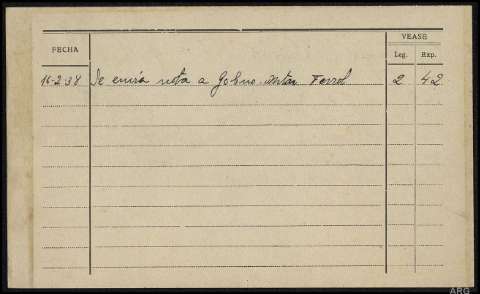 VEASE
FECHA
Leg. Exp.
16-2-38 Se envía nota a Gobno. Mtar Ferrol 2 42
ARG